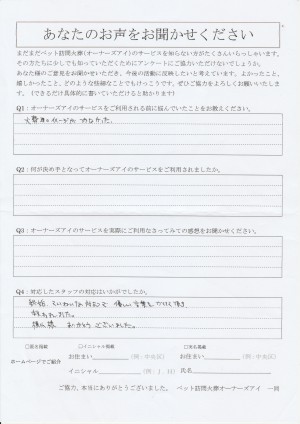 あなたのお声をお聞かせください
まだまだペット訪問火葬(オーナーズアイ)のサービスを知らない方がたくさんいらっしゃいます。
その方たちに少しでも知っていただくためにアンケートにご協力いただけないでしょうか。
あなた様のご意見をお聞かせいただき、今後の活動に反映したいと考えています。よかったこと、
嬉しかったこと、どのような些細なことでもけっこうです。ぜひご協力をよろしくお願いいたしま
す。(できるだけ具体的に書いていただけると助かります)
Q1:オーナーズアイのサービスをご利用される前に悩んでいたことをお教えください。
火葬車のイメージが
Q2:何が決め手となってオーナーズアイのサービスをご利用されましたか。
Q3:オーナーズアイのサービスを実際にご利用なさってみての感想をお聞かせください。
Q4:対応したスタッフの対応はいかがでしたか。
終始、ていねいな対応で 優しい言葉をかけて頂き
救われました。
ありがとうございました。
□匿名掲載 □イニシャル掲載 □実名掲載
ホームページでご紹介
お住まい (例:中央区) お住まい (例:中央区)
イニシャル (例:J．H) 氏名
ご協力、本当にありがとうございました。 ペット訪問火葬オーナーズアイ 一同